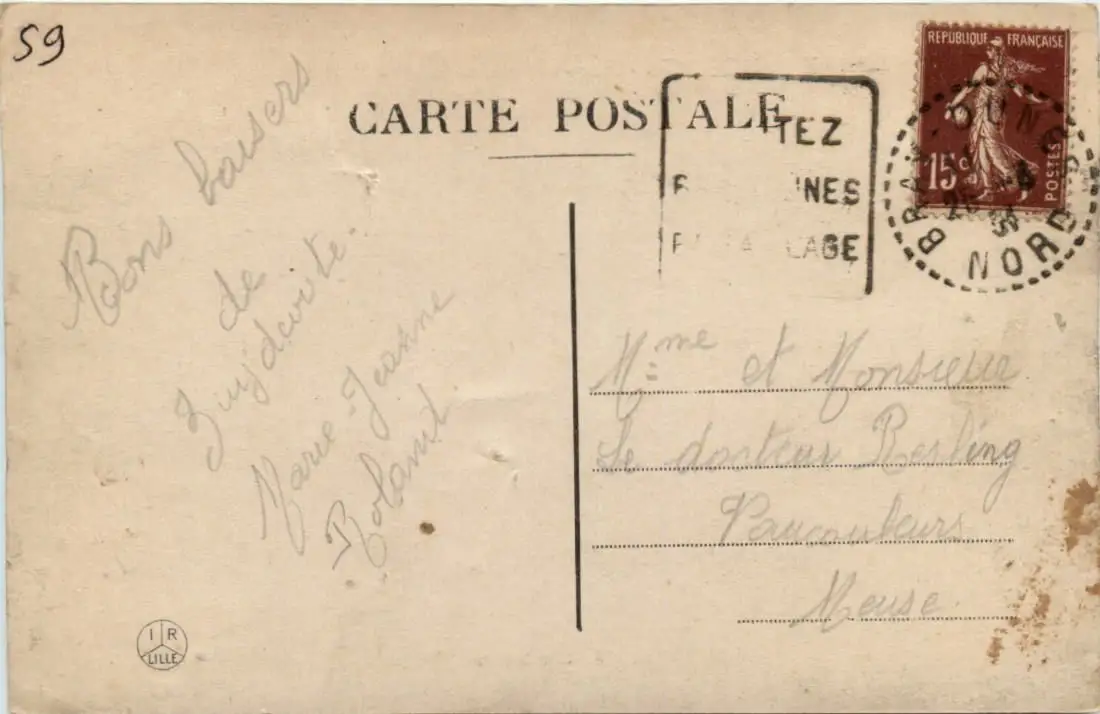 59
CARTE POSTALE
REPUBLIQUE FRANÇAISE
15c
POSTES
TEZ
NES
LAGE
BRAY-DUNES
NORD
Bons baisers
de
Zuydcoote.
Marie-Jeanne
Roland
Mme et Monsieur
le docteur Resling
Vaucouleurs
Meuse.
I R
LILLE